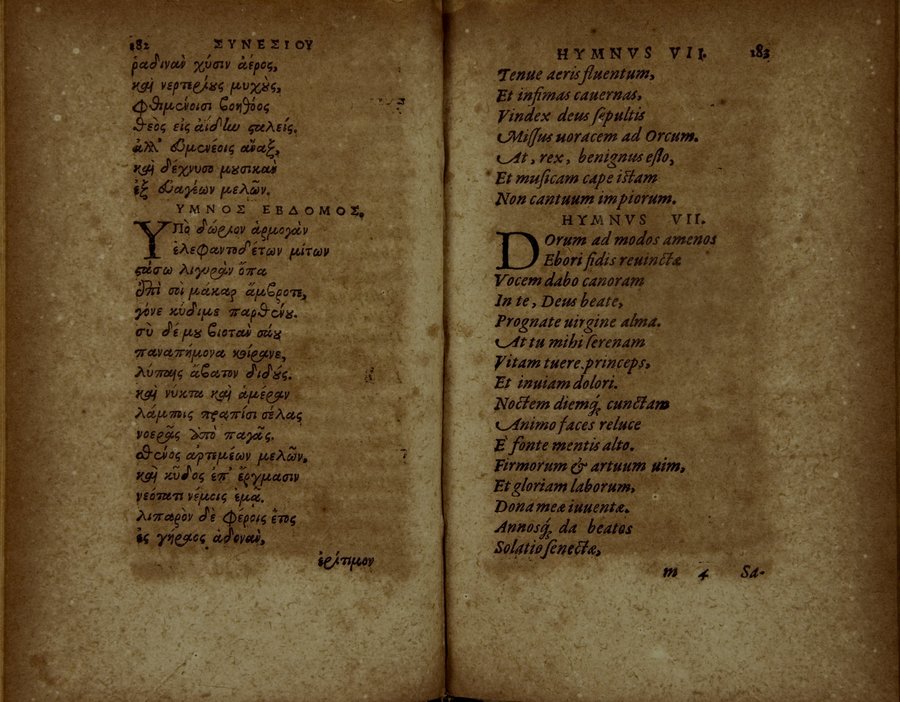 182 ΣΥΝΕΣΙΟΥ
ῥαδινὰν χύσιν ἀέρος,
καὶ νερτερίους μυχοὺς,
φθιμένοισι βοηθόος
θεὸς εἰς ἀΐδην σαλείς.
ἀλλ' εὐμενέοις ἄναξ,
καὶ δέχνυσο μουσικὰν
ἐξ εὐαγέων μελῶν.
ΥΜΝΟΣ ΕΒΔΟΜΟΣ.
ΥΠὸ δώριον ἁρμογὰν
ἐλεφαντοδέτων μίτων
στάσω λιγυρὰν ὄπα
ἐπί σοι μάκαρ ἄμβροτε,
γόνε κύδιμε παρθένου.
σὺ δέ μου βιοτὰν σάου
παναπήμονα κοίρανε,
λύπαις ἄβατον διδούς.
καὶ νύκτα καὶ ἁμέραν
λάμποις πραπίσι σέλας
νοερᾶς ἀπὸ παγᾶς.
σθένος ἀρτεμέων μελῶν,
καὶ κῦδος ἐπ' ἔργμασιν
νεότατι νέμοις ἐμᾷ.
λιπαρὸν δὲ φέροις ἔτος
ἐς γήραος ἁδονὰν,
ἐρίτιμον
HYMNVS VII. 183
Tenue aeris fluentum,
Et infimas cauernas,
Vindex deus sepultis
Missus uoracem ad Orcum.
At, rex, benignus esto,
Et musicam cape istam
Non cantuum impiorum.
HYMNVS VII.
DOrum ad modos amenos
Ebori fidis reuinctæ
Vocem dabo canoram
In te, Deus beate,
Prognate uirgine alma.
At tu mihi serenam
Vitam tuere princeps,
Et inuiam dolori.
Noctem diemq́; cunctam
Animo faces reluce
E fonte mentis alto.
Firmorum & artuum uim,
Et gloriam laborum,
Dona meæ iuuentæ.
Annosq́; da beatos
Solatio senectæ,
m 4 Sa-